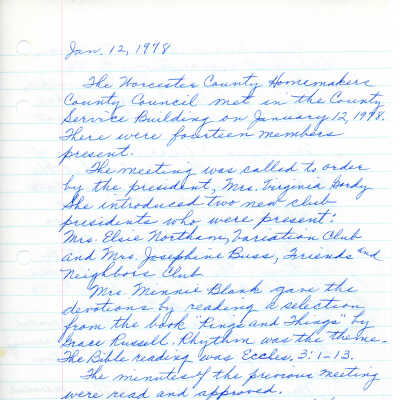 Jan. 12, 1978
The Worcester County Homemakers
County Council met in the County
Service Building on January 12, 1978.
There were fourteen members
present.
The meeting was called to order
by the president, Mrs. Virginia Gordy
She introduced two new club
presidents who were present:
Mrs. Elsie Northam, Variation Club
and Mrs. Josephine Buss, Friends and
Neighbors Club
Mrs. Minnie Blank gave the
devotions by reading a selection
from the book "Rings and Things" by
Grace Russell. Rhythm was the theme.
The Bible reading was Eccles. 3:1-13.
The minutes of the previous meeting
were read and approved.